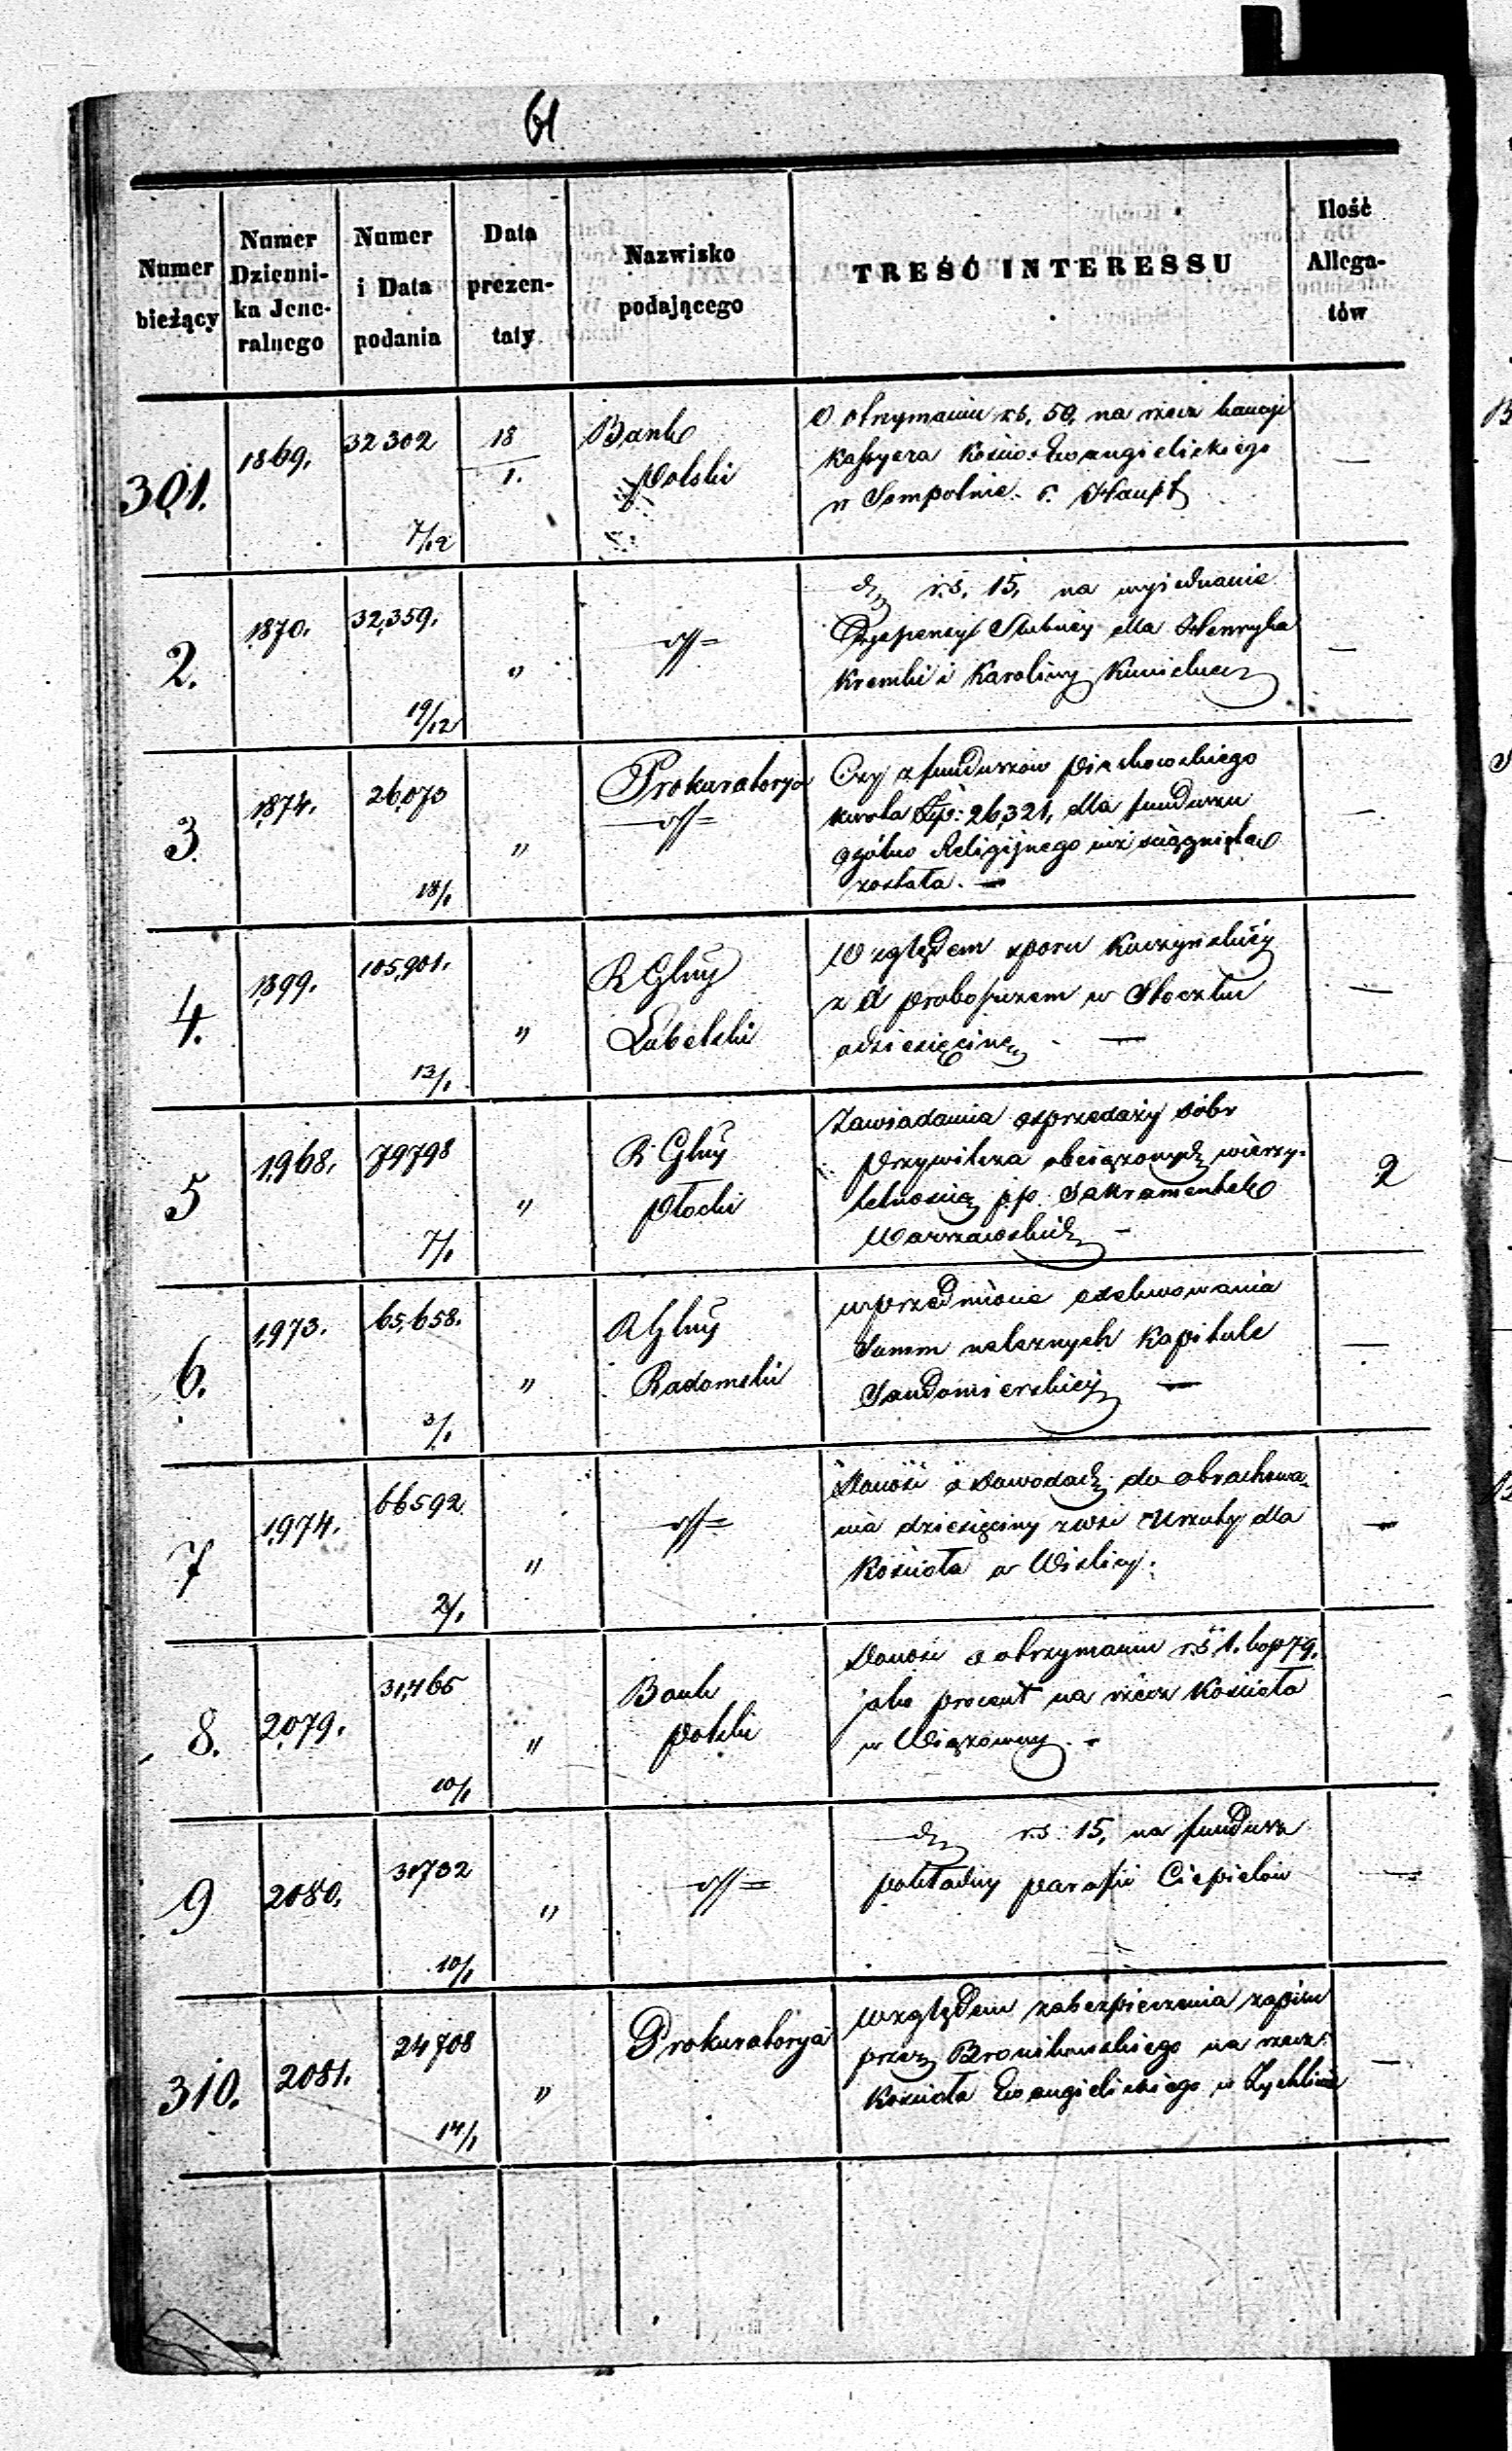 61
Numer bieżący
Numer Dzienni-ka Jene-ralnego
Numer i Data podania
Data prezen-taty
Nazwisko podającego
TREŚĆ INTERESSU
Ilość Allega-tów
301. 1869. 32302 7/12 18/1. Bank Polski
O otrzymaniu rs. 50, na rzecz kaucyi
Kassyera Kościo: Ewangielickiego
w Sompolnie r. Haupt —
2. 1870. 32,359. 19/12 "
rs. 15, na wyjednanie
Dyspensy Slubnej dla Henryka
i Karoliny —
3 1874. 26,073 18/1 " Prokuratorya
Czy z funduszów
kwota Złp: 26,321, dla funduszu
ogólno Religijnego już ściągnięta
została. — —
4. 1899. 105,901. 13/1 " R Glny Lubelski
Względem sporu
z X proboszczem w Stoczku
o dziesięcinę — —
5 1,968. 79798 7/1 " R. Glny Płocki
Zawiadamia o sprzedaży dóbr
obciążonych wierzy-
telnością pp. Sakramentek
Warszawskich — 2
6. 1,973. 65,658. 3/1 " R Glny Radomski
w przedmiocie exekwowania
Summ należnych Kapitule
Sandomierskiej — —
7 1,974. 66592 2/1 "
Donosi o dowodach do obrachowa-
nia dziesięciny z wsi dla
Kościoła w Wislicy. —
8. 2079. 31,465 10/1 " Bank Polski
Donosi o otrzymaniu rs. 1. kop 79.
jako procent na rzecz Kościoła
w Wiązowny. —
9 2080. 31732 10/1 "
rs: 15, na fundusz
pokładny parafii Ciepielow —
310. 2081. 24708 14/1 " Prokuratorya
Względem zabezpieczenia zapisu
przez Bronikowskiego na rzecz
Kościoła Ewangielickiego w Żychlinie —